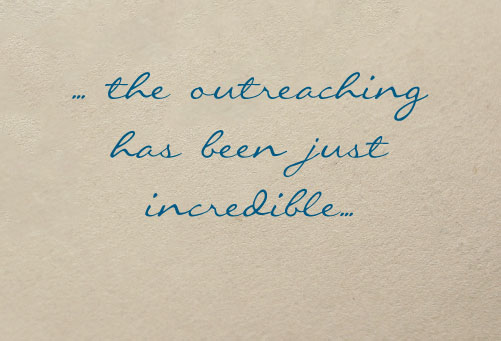 ... the outreaching
has been just
incredible...